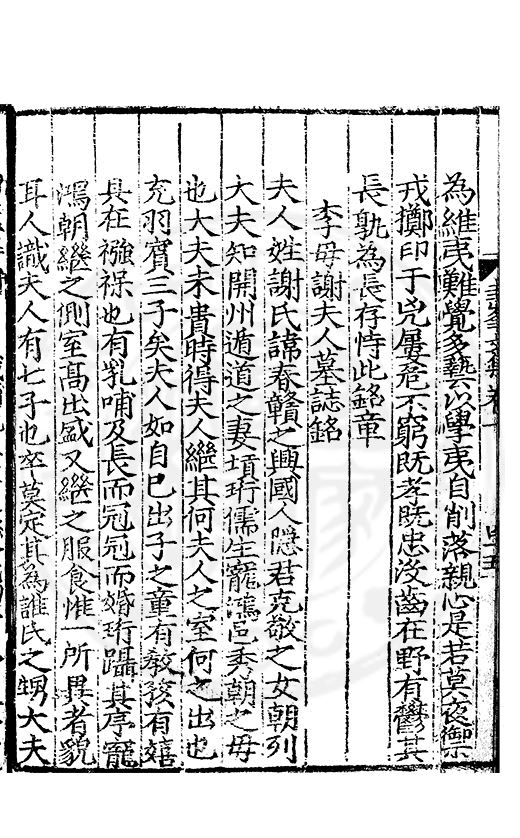 為維夷難覺多藝以學夷自削落親心是若莫夜禦
戎擲印于兇屢危不窮既孝既忠沒齒在野有鬱其
長孰為長存恃此銘章
李母謝夫人墓誌銘
夫人姓謝氏諱春贛之興國人隱君克敬之女朝列
大夫知開州遁道之妻壻珩儒生寵鴻邑秀朝之母
也大夫未貴時得夫人繼其何夫人之室何之出也
充羽賓三子矣夫人如自己出子之童有教孩有嬉
具在襁褓也有乳哺及長而冠冠而婚珩躡其序寵
鴻朝繼之側室高出盛又繼之服食惟一所異者貌
耳人識夫人有七子也卒莫定其為誰氏之甥大夫